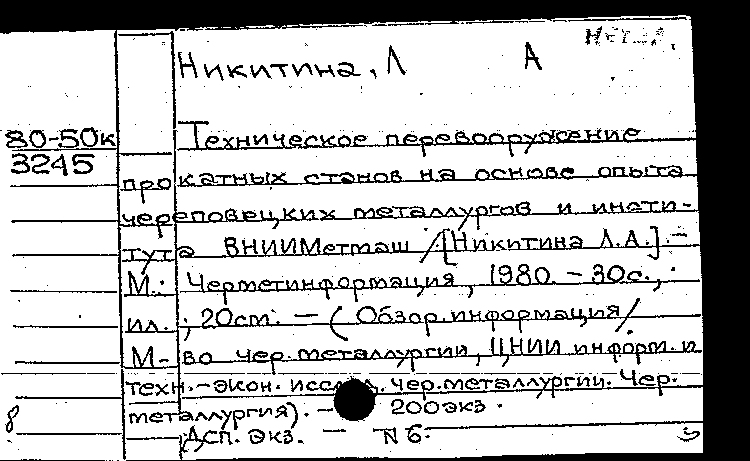 Никитина, Л А
80-50к
3245
Техническое перевооружение
прокатных станов на основе опыта
череповецких металлургов и инсти-
тута ВНИИМетмаш /[Никитина Л.А.].-
М.: Черметинформация, 1980. - 30с.,
ил.; 20см. - (Обзор.информация/
М-во чер.металлургии, ЦНИИ информ. и
техн.-экон. исслед. чер.металлургии. Чер.
металлургия). - 200экз.
ДСП. Экз. - N 6.
8